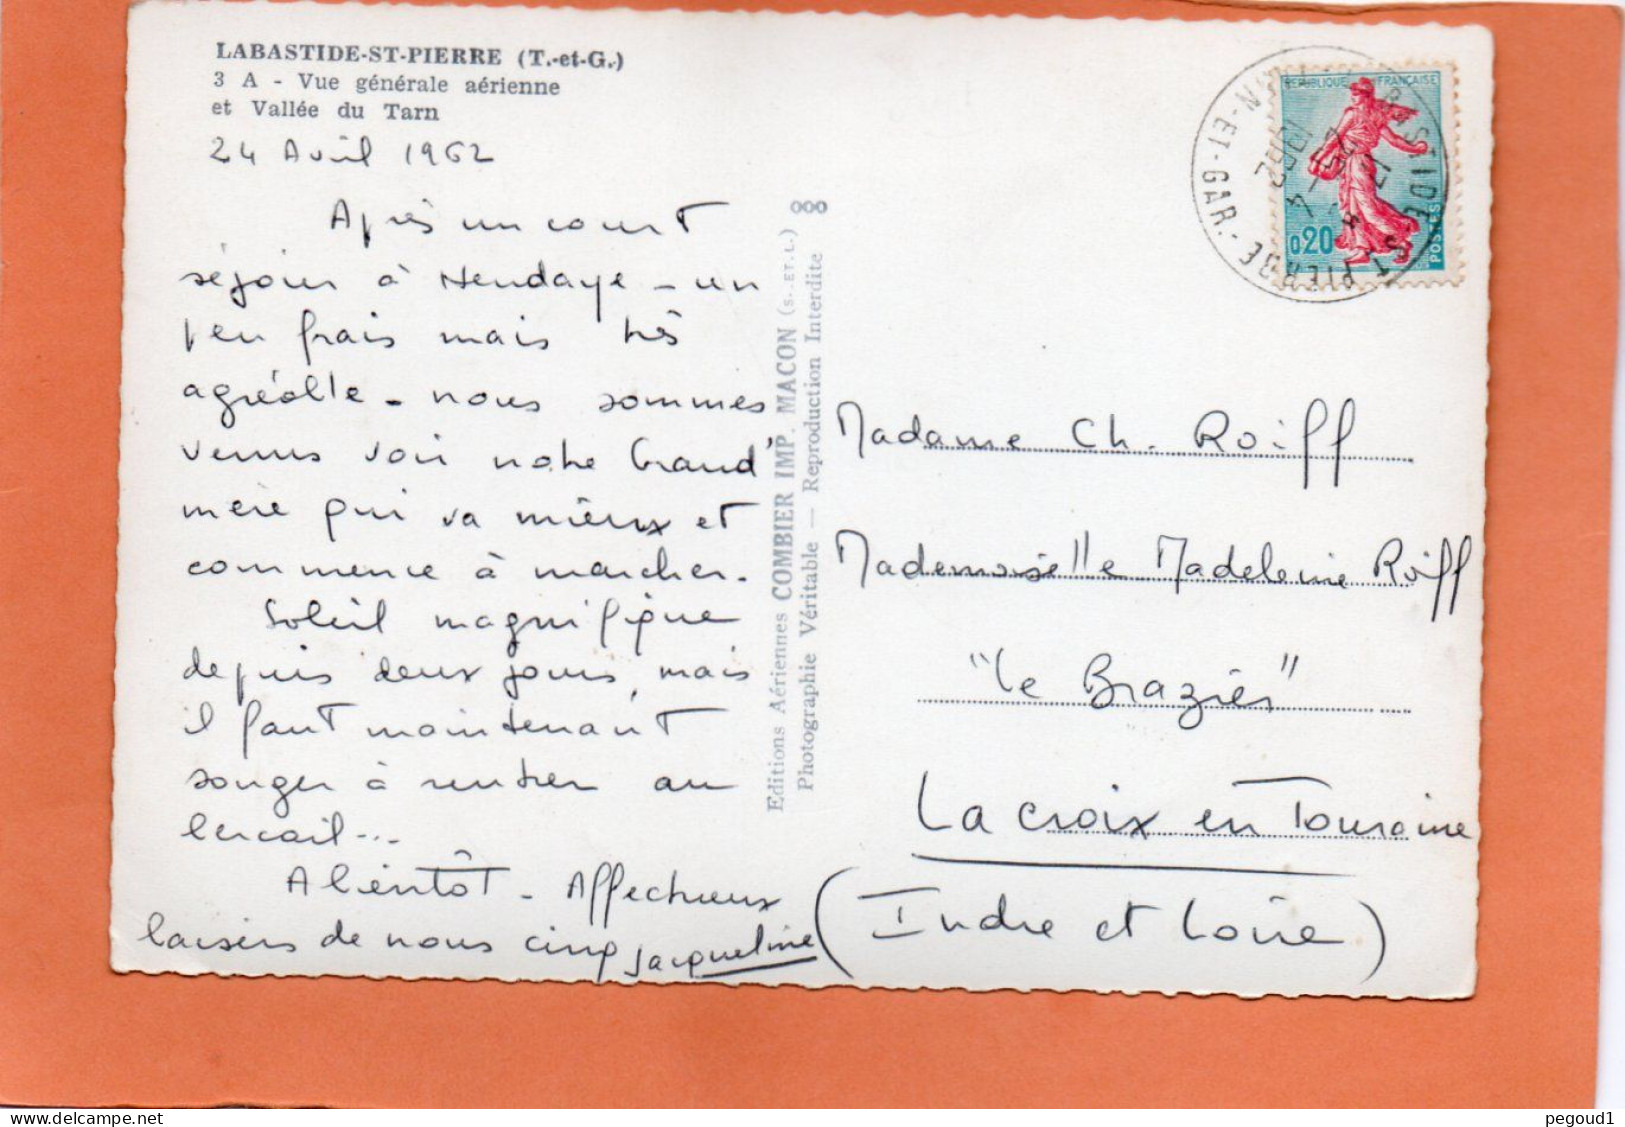 LABASTIDE-ST-PIERRE (T.-et-G.)
3 A - Vue générale aérienne
et Vallée du Tarn
24 Avril 1962
Après un court
séjour à Hendaye - un
peu frais mais très
agréable - nous sommes
venus voir notre Grand'
mère qui va mieux et
commence à marcher.
Soleil magnifique
depuis deux jours, mais
il faut maintenant
songer à rentrer au
bercail...
A bientôt - Affectueux
baisers de nous cinq
Jacqueline
Editions Aériennes COMBIER IMP. MACON (S.-ET-L.)
Photographie Véritable — Reproduction Interdite
REPUBLIQUE FRANÇAISE
0,20
POSTES
LABASTIDE-ST-PIERRE
TARN-ET-GAR.
24-4
1962
Madame Ch. Roiff
Mademoiselle Madeleine Roiff
"Le Braziés"
La Croix en Touraine
(Indre et Loire)
pegoud1